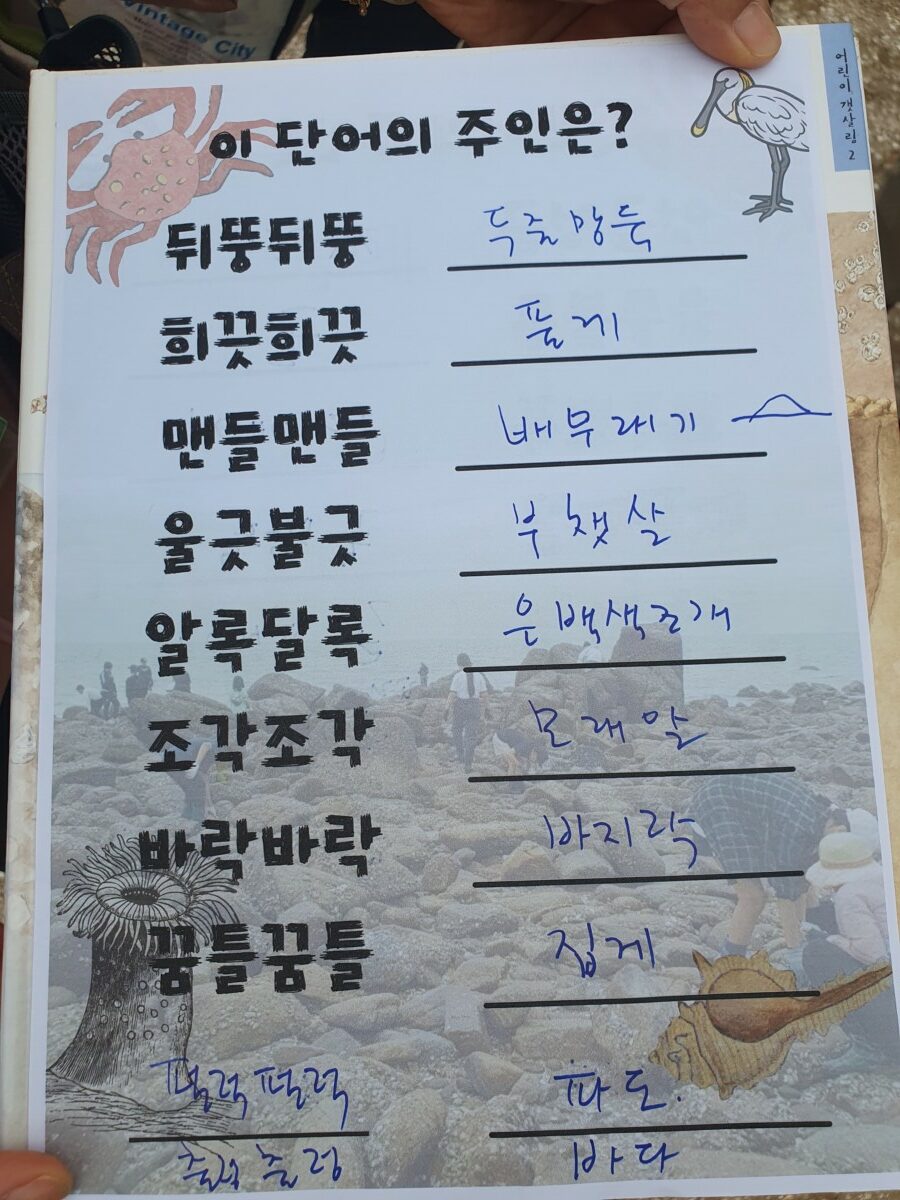 Vintage City
어린이 갯살림 2
이 단어의 주인은?
뒤뚱뒤뚱 두줄망둑
희끗희끗 풀게
맨들맨들 배무래기
울긋불긋 부챗살
알록달록 은백색조개
조각조각 모래알
바락바락 바지락
꿈틀꿈틀 집게
펄럭펄럭 파도.
출렁출렁 바다